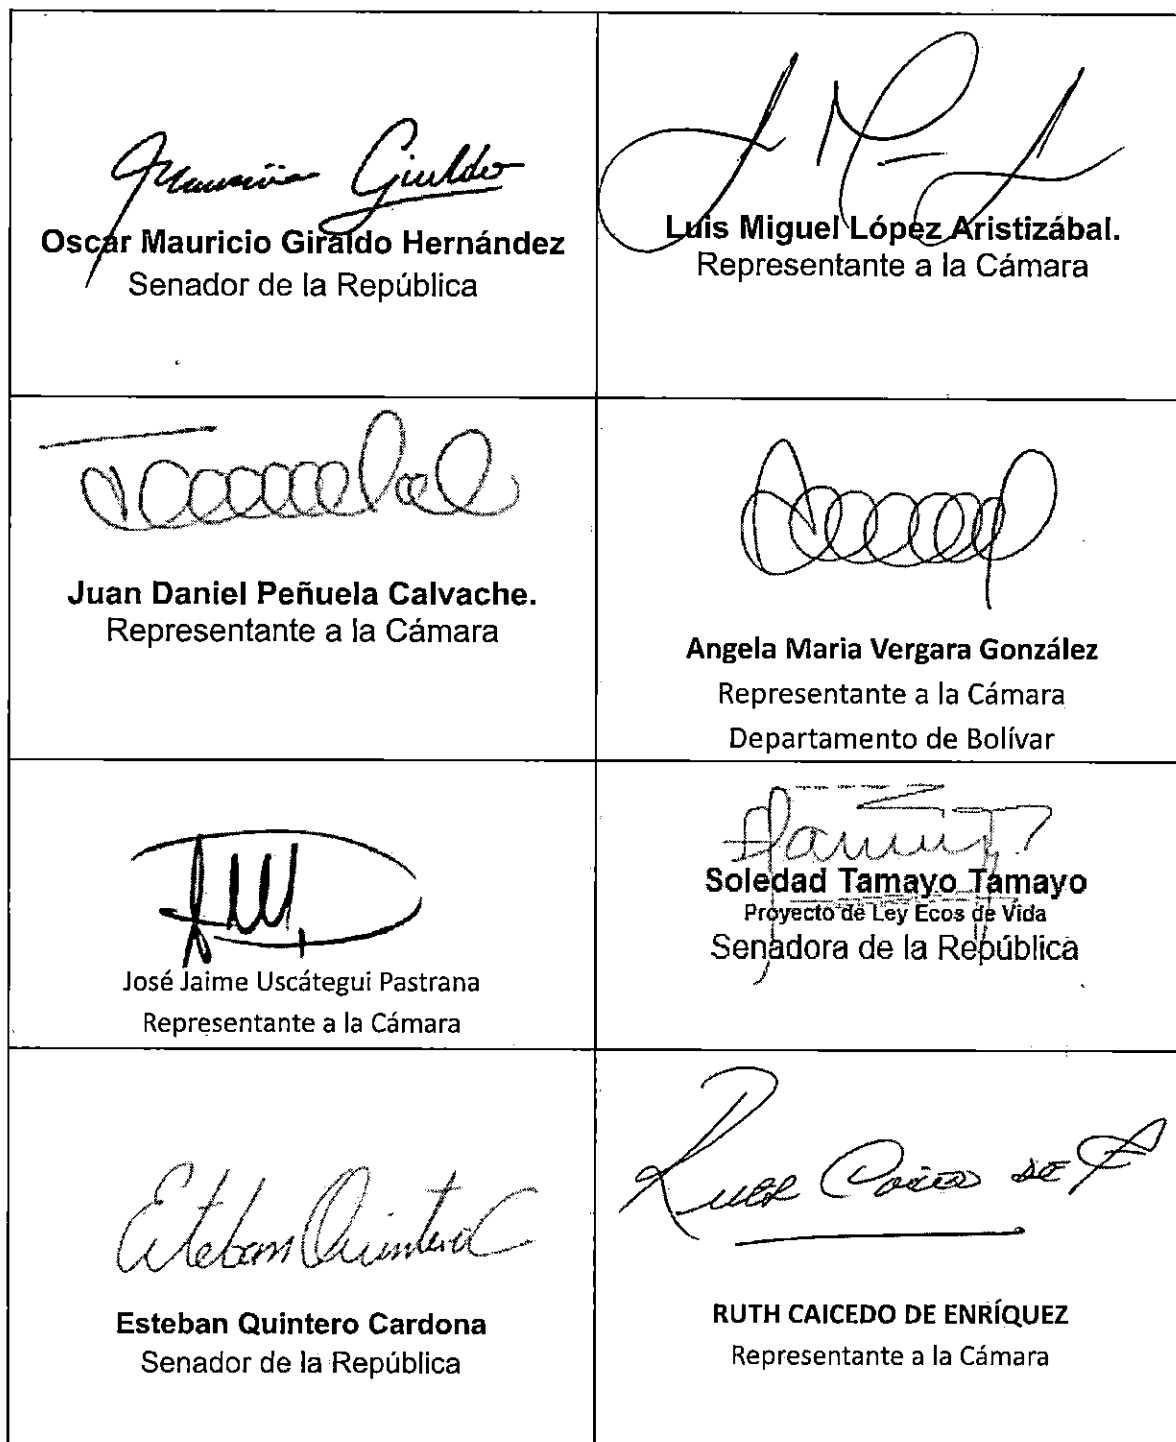 Mauricio Giraldo
Oscar Mauricio Giraldo Hernández
Senador de la República
Luis Miguel López Aristizábal.
Representante a la Cámara
Juan Daniel Peñuela Calvache.
Representante a la Cámara
Angela Maria Vergara González
Representante a la Cámara
Departamento de Bolívar
José Jaime Uscátegui Pastrana
Representante a la Cámara
Soledad Tamayo Tamayo
Proyecto de Ley Ecos de Vida
Senadora de la República
Esteban Quintero C
Esteban Quintero Cardona
Senador de la República
RUTH CAICEDO DE ENRÍQUEZ
Representante a la Cámara